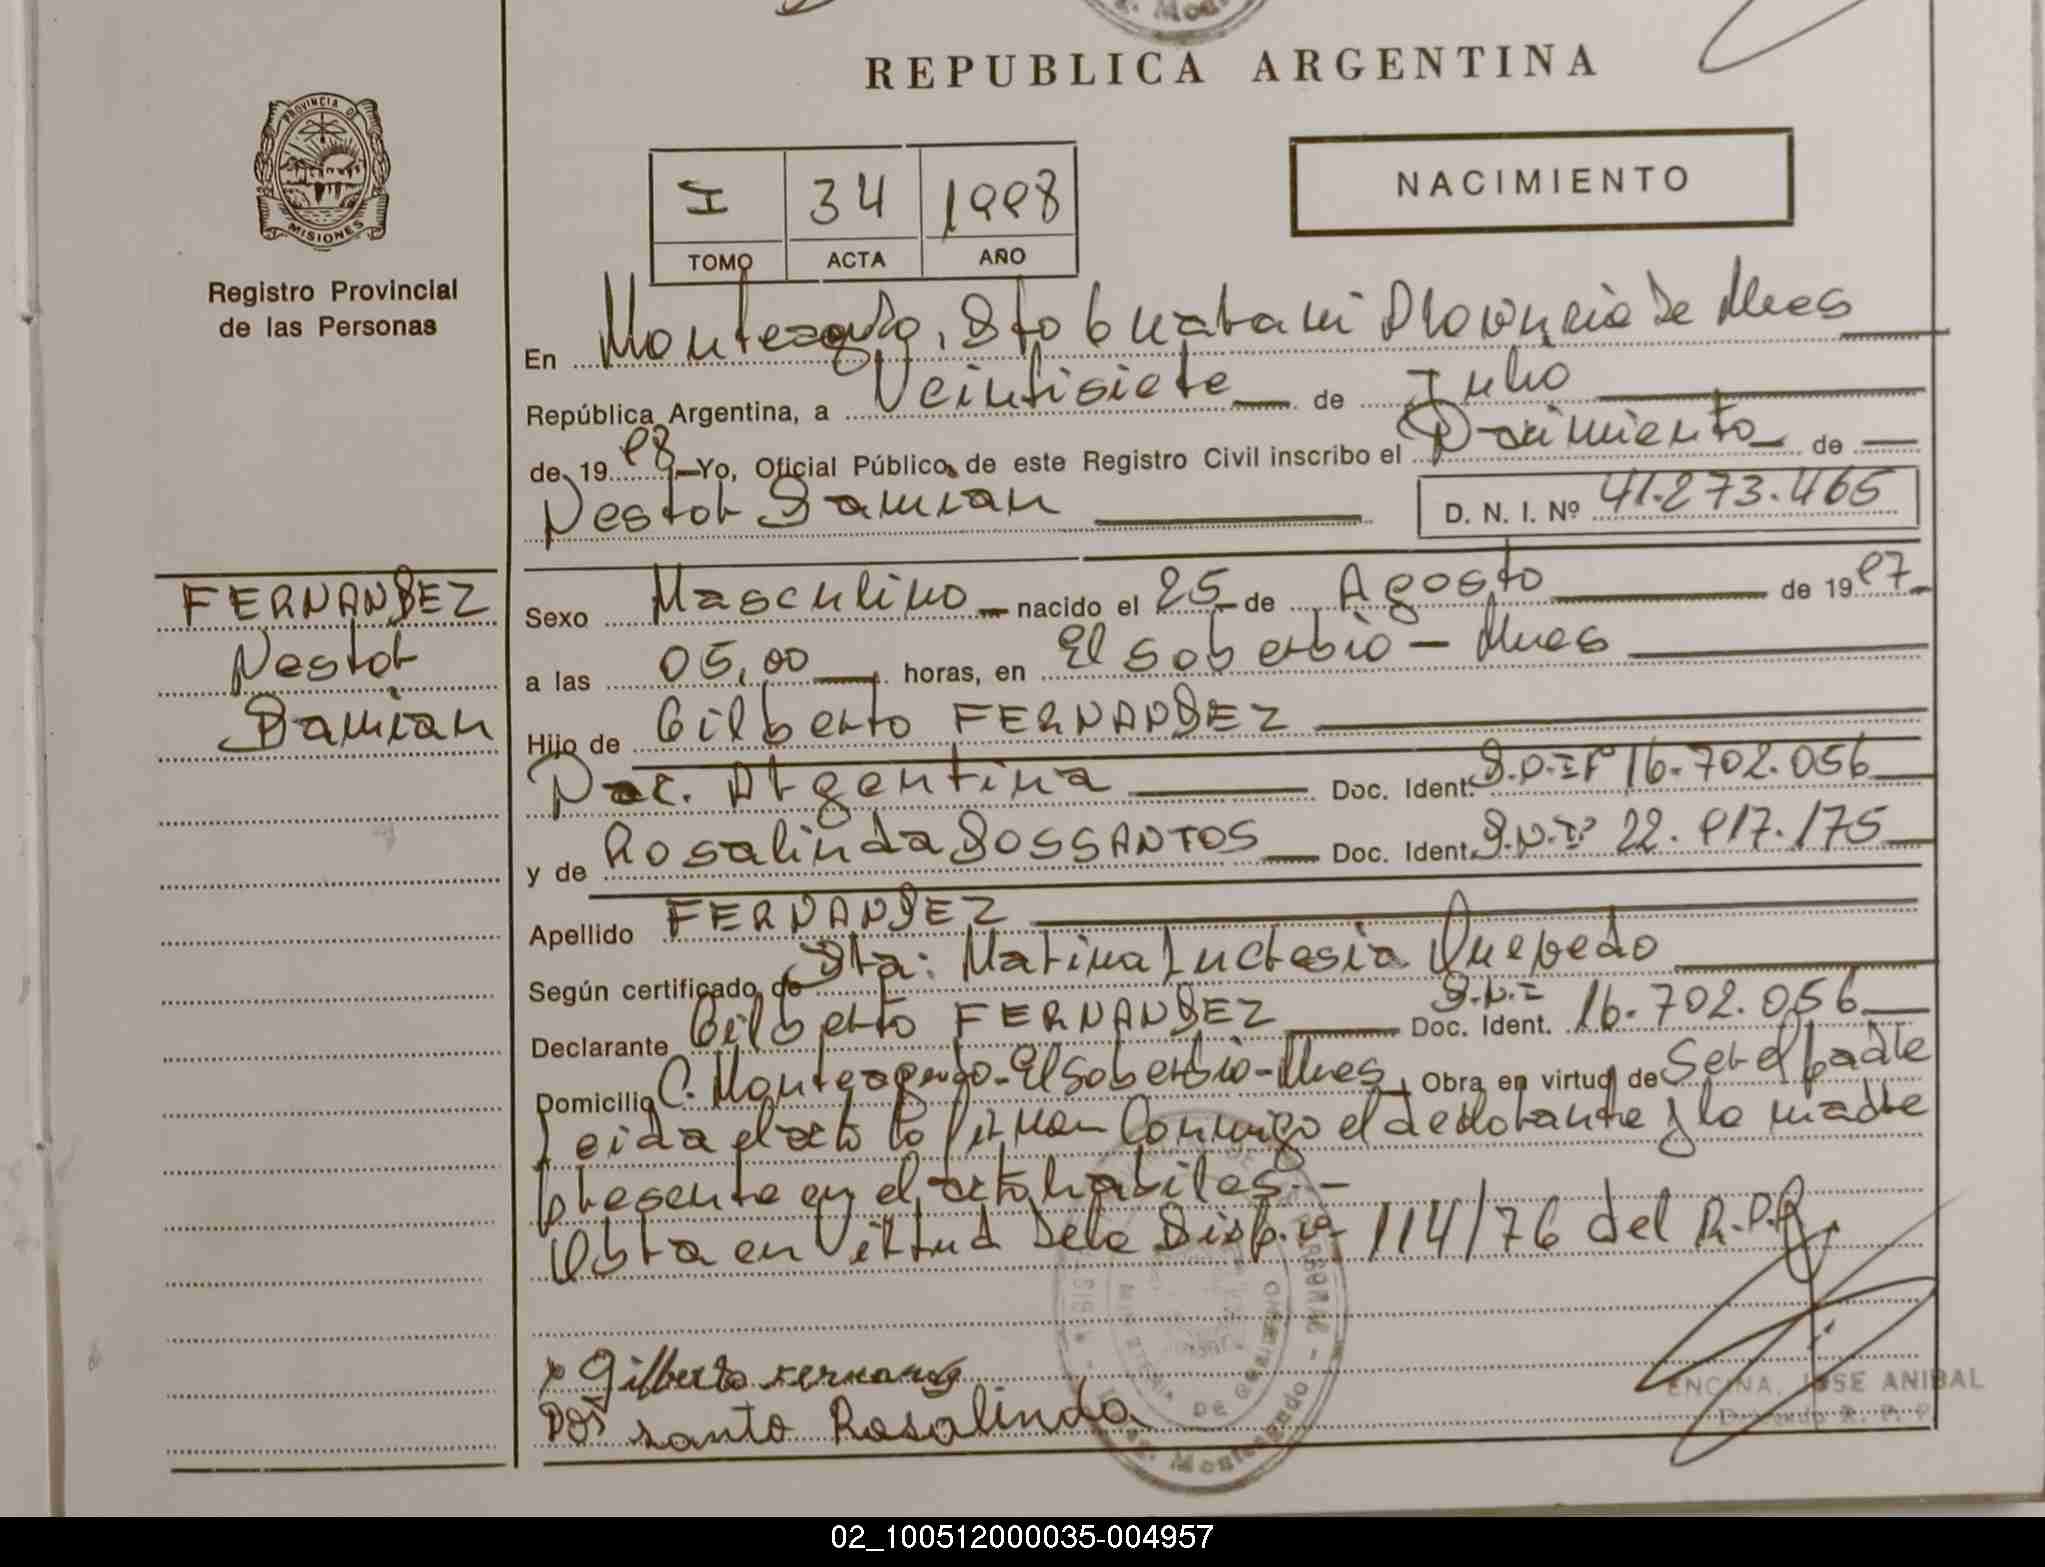 REPUBLICA ARGENTINA
PROVINCIA DE
MISIONES
Registro Provincial
de las Personas
I 34 1998
TOMO ACTA AÑO
NACIMIENTO
En Monteagudo, Gto Guarani Provincia De Mnes
República Argentina, a Veintisiete de Julio
de 19 98 Yo, Oficial Público de este Registro Civil inscribo el Nacimiento de
Nestor Damian D. N. I. Nº 41.273.465
FERNANDEZ
Nestor
Damian
Sexo Masculino nacido el 25 de Agosto de 19 97
a las 05,00 horas, en El Soberbio - Mnes
Hijo de Gilberto FERNANDEZ
Nac. Argentina Doc. Ident. D.N.I Nº 16.702.056
y de Rosalinda DOSSANTOS Doc. Ident. D.N.Iº 22.917.175
Apellido FERNANDEZ
Según certificado de Dra: Marina Lucresia Quevedo
Declarante Gilberto FERNANDEZ Doc. Ident. D.N.I 16.702.056
Domicilio C. Monteagudo - El Soberbio - Mnes Obra en virtud de Ser el padre
Leida el acta la firman Conmigo el declarante y la madre
presente en el acto habiles. -
Obra en Virtud De la Disp. nº 114/76 del R.P.P
Gilberto Fernandez
Dos santo Rosalinda
ENCINA, JOSE ANIBAL
Monteagudo
02_100512000035-004957